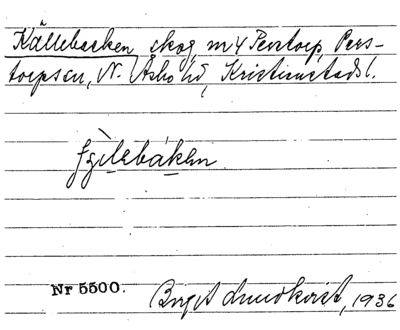 Källebacken skog m 4 Perstorp, Pers-
torps sn, N. Åsbo hd, Kristianstads l.
fʒìlebákən
Nr 5500.
Birgit Lundkvist, 1936